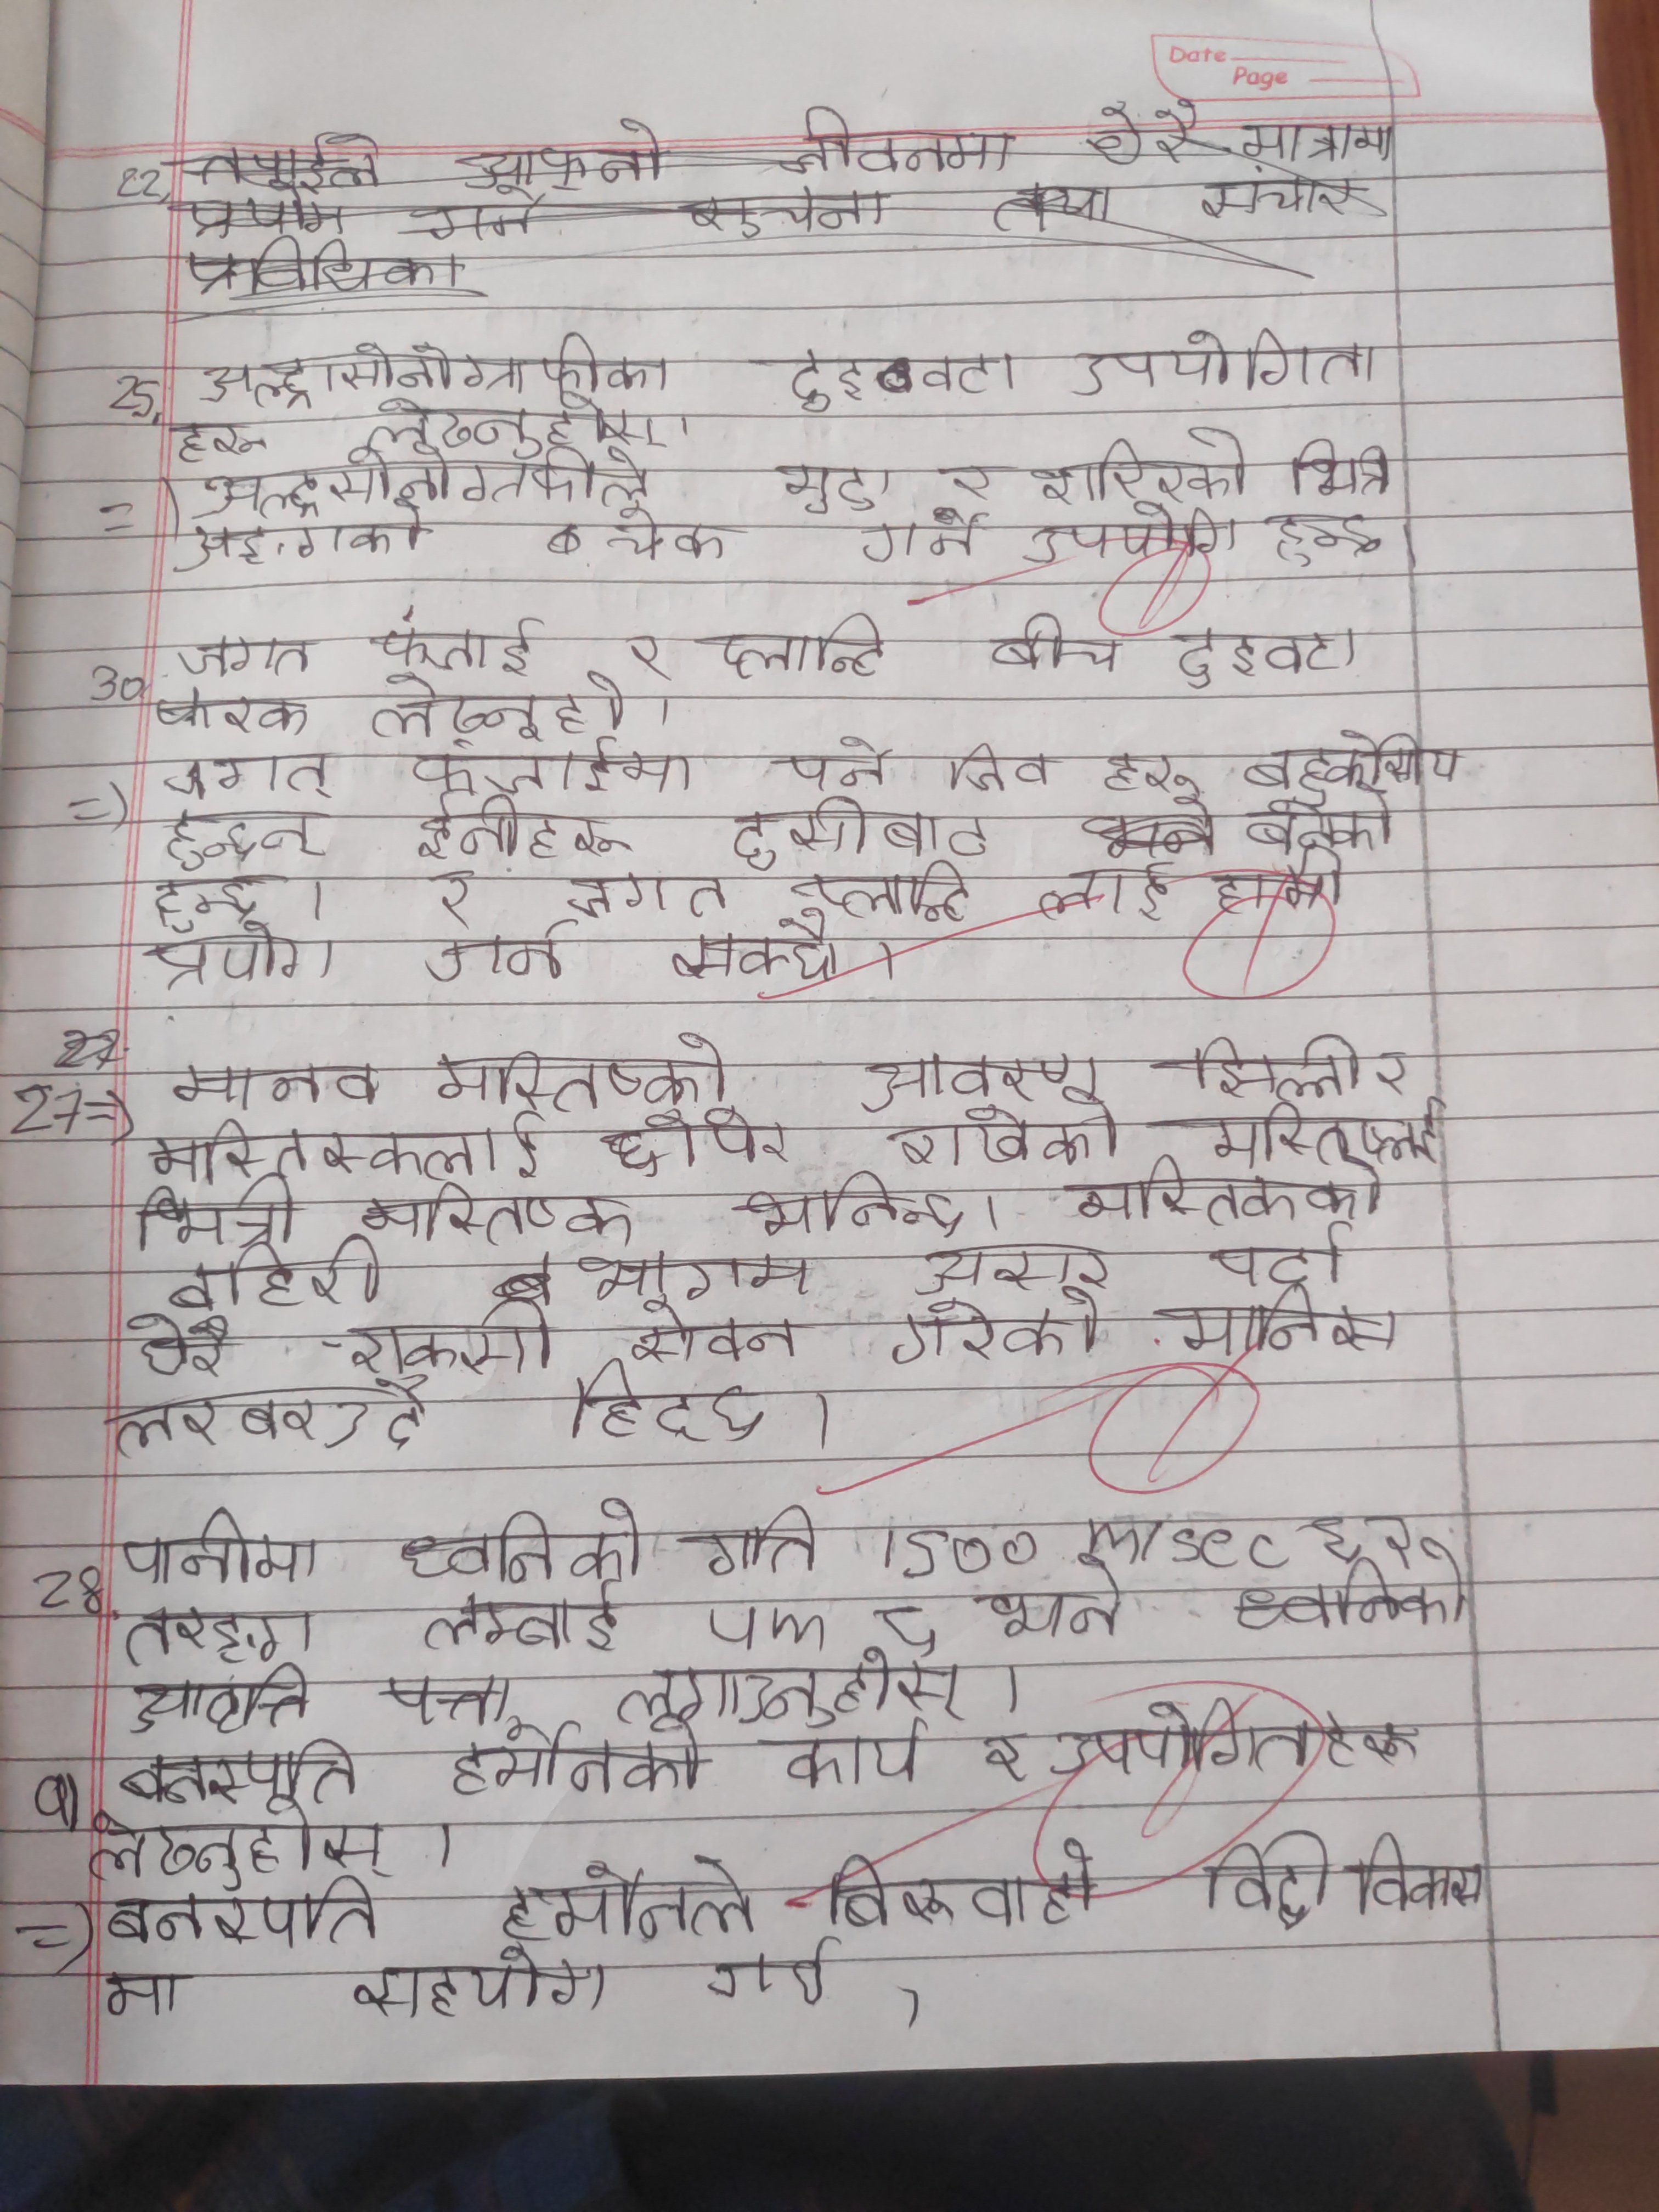 Date
Page
22, तपाईले आफ्नो जीवनमा धेरै मात्रामा
प्रयोग गर्ने सुचना तथा संचार
प्रविधिका
25, अल्ट्रासोनोग्राफीका दुइवटा उपयोगिता
हरु लेख्नुहोस।
=) मुटु र शरिरको भित्रि
अङ्गको चेक गर्न उपयोगि हुन्छ।
30, जगत फंजाई र प्लान्टि बीच दुइवटा
फरक लेख्नुहो।
=) जगत फंजाईमा पर्ने जिव हरु बहुकोसीय
हुन्छन् ईनीहरु ढुसीबाट बनेको
हुन्छ। र जगत प्लान्टि लाई हामी
प्रयोग गर्न सक्छौ।
27=) मानव मस्तिष्को आवरण झिल्ली र
मस्तिस्कलाई छोपेर राखेको
भित्री मस्तिष्क भनिन्छ। मस्तिकको
बाहिरी भागम असर पर्दा
धेरै रक्सी सेवन गरेको मानिस
लरबरउदै हिडछ।
28, पानीमा ध्वनिको गति 1500 m/sec छ र
तरङ्ग लम्बाई 5m छ भने ध्वनिको
आवृत्ति पत्ता लगाउनुहोस्।
9) बनस्पति हर्मोनको कार्य र उपयोगिताहरु
लेख्नुहोस्।
=) बनस्पति हर्मोनले बिरुवाको विद्दी विकास
मा सहयोग गर्छ,